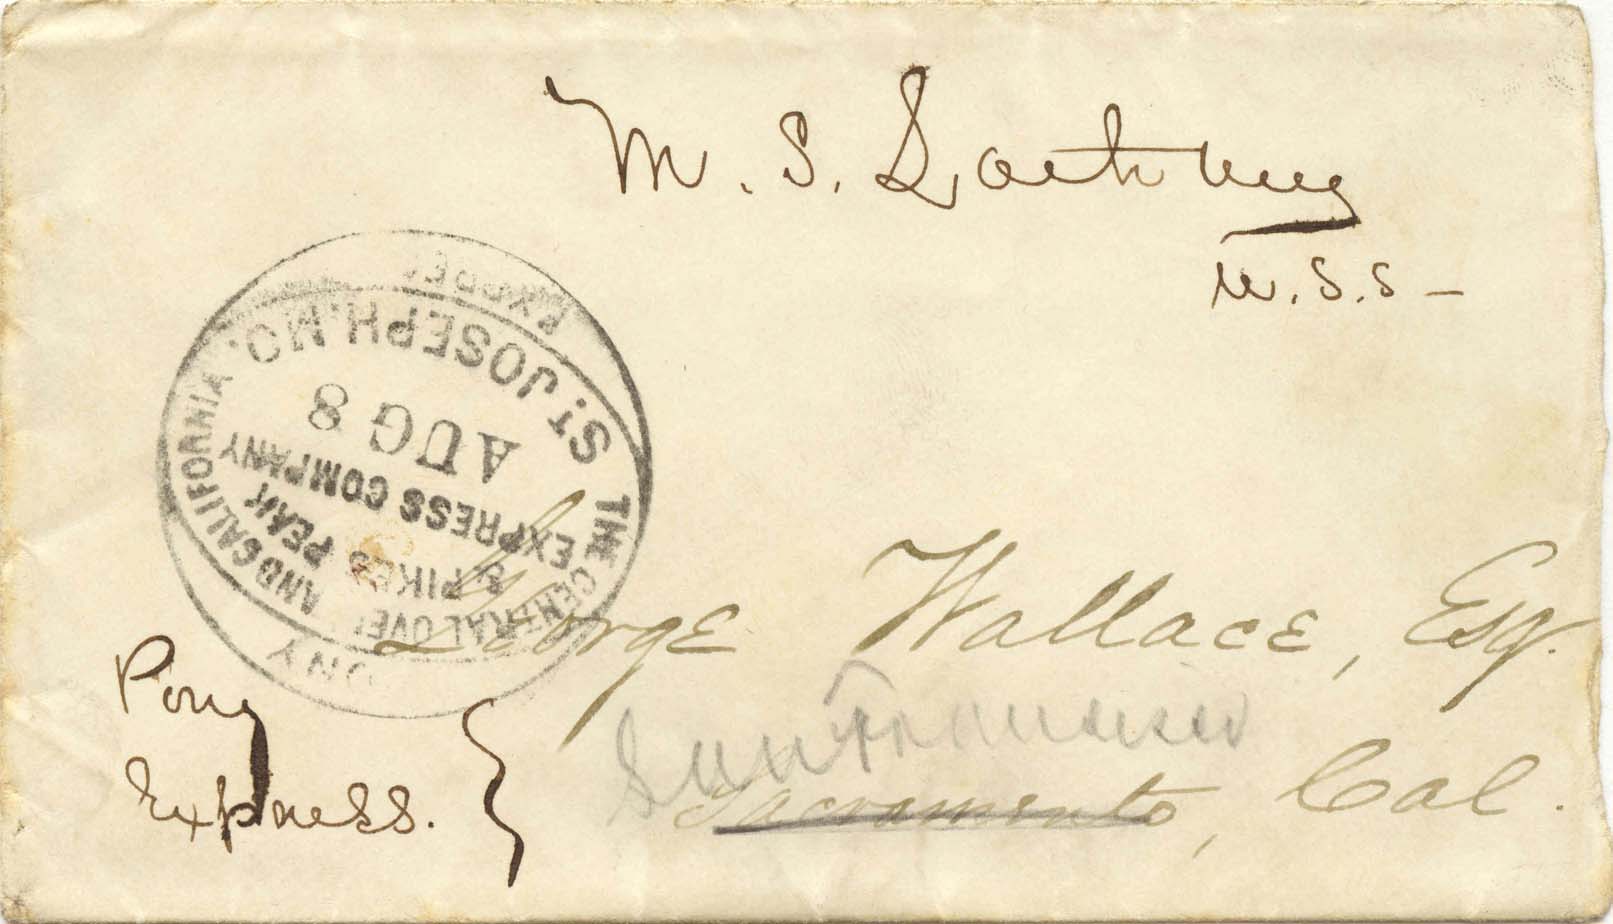 M. S. Latham
U.S.S -
PONY EXPRE
THE CENTRAL OVE AND CALIFORNIA
& PIKES PEAK
EXPRESS COMPANY
AUG 8
ST. JOSEPH. MO.
George Wallace, Esq.
San Francisco
Sacramento, Cal.
Pony
Express.